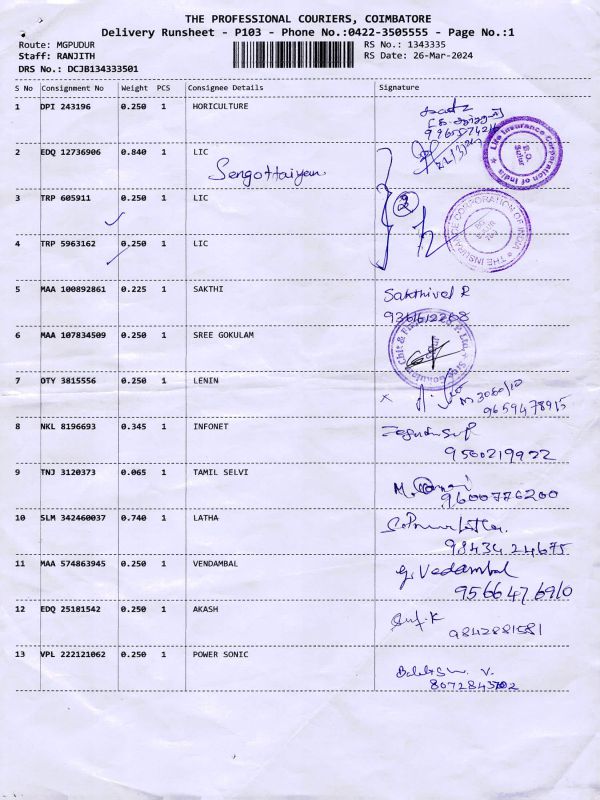 THE PROFESSIONAL COURIERS, COIMBATORE
Delivery Runsheet - P103 - Phone No.:0422-3505555 - Page No.:1
Route: MGPUDUR RS No.: 1343335
Staff: RANJITH RS Date: 26-Mar-2024
DRS No.: DCJB134333501
S No Consignment No Weight PCS Consignee Details Signature
1 DPI 243196 0.250 1 HORICULTURE
Life Insurance Corporation of India
2 EDQ 12736906 0.840 1 LIC
Sengottaiyan
3 TRP 605911 0.250 1 LIC
2
THE INSURANCE CORPORATION OF INDIA
4 TRP 5963162 0.250 1 LIC
5 MAA 100892861 0.225 1 SAKTHI Sakthivel R
9361612268
6 MAA 107834509 0.250 1 SREE GOKULAM
7 OTY 3815556 0.250 1 LENIN
9659478915
8 NKL 8196693 0.345 1 INFONET
9500219922
9 TNJ 3120373 0.065 1 TAMIL SELVI
9600776200
10 SLM 342460037 0.740 1 LATHA
9843424675
11 MAA 574863945 0.250 1 VENDAMBAL G. Vedambal
9566476910
12 EDQ 25181542 0.250 1 AKASH
9842881581
13 VPL 222121062 0.250 1 POWER SONIC
8072843702